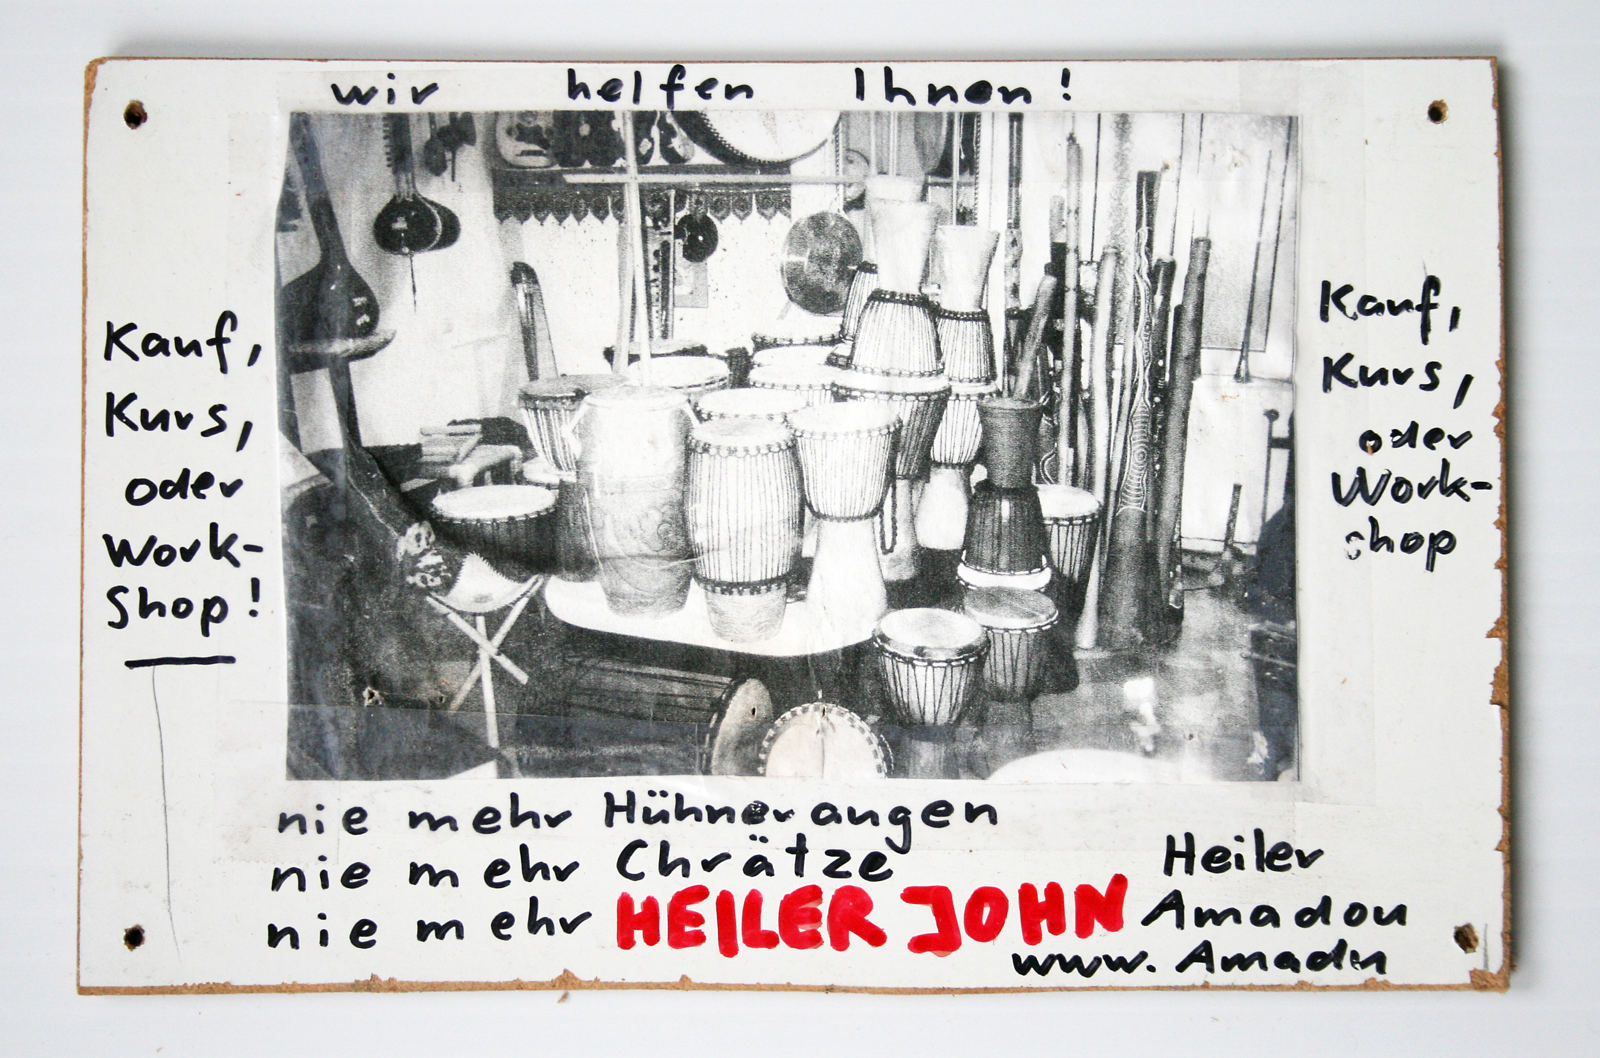 wir helfen Ihnen!
Kauf,
Kurs,
oder
Work-
Shop!
Kauf,
Kurs,
oder
Work-
shop
nie mehr Hühneraugen
nie mehr Chrätze
nie mehr HEILER JOHN
Heiler
Amadou
www. Amadu